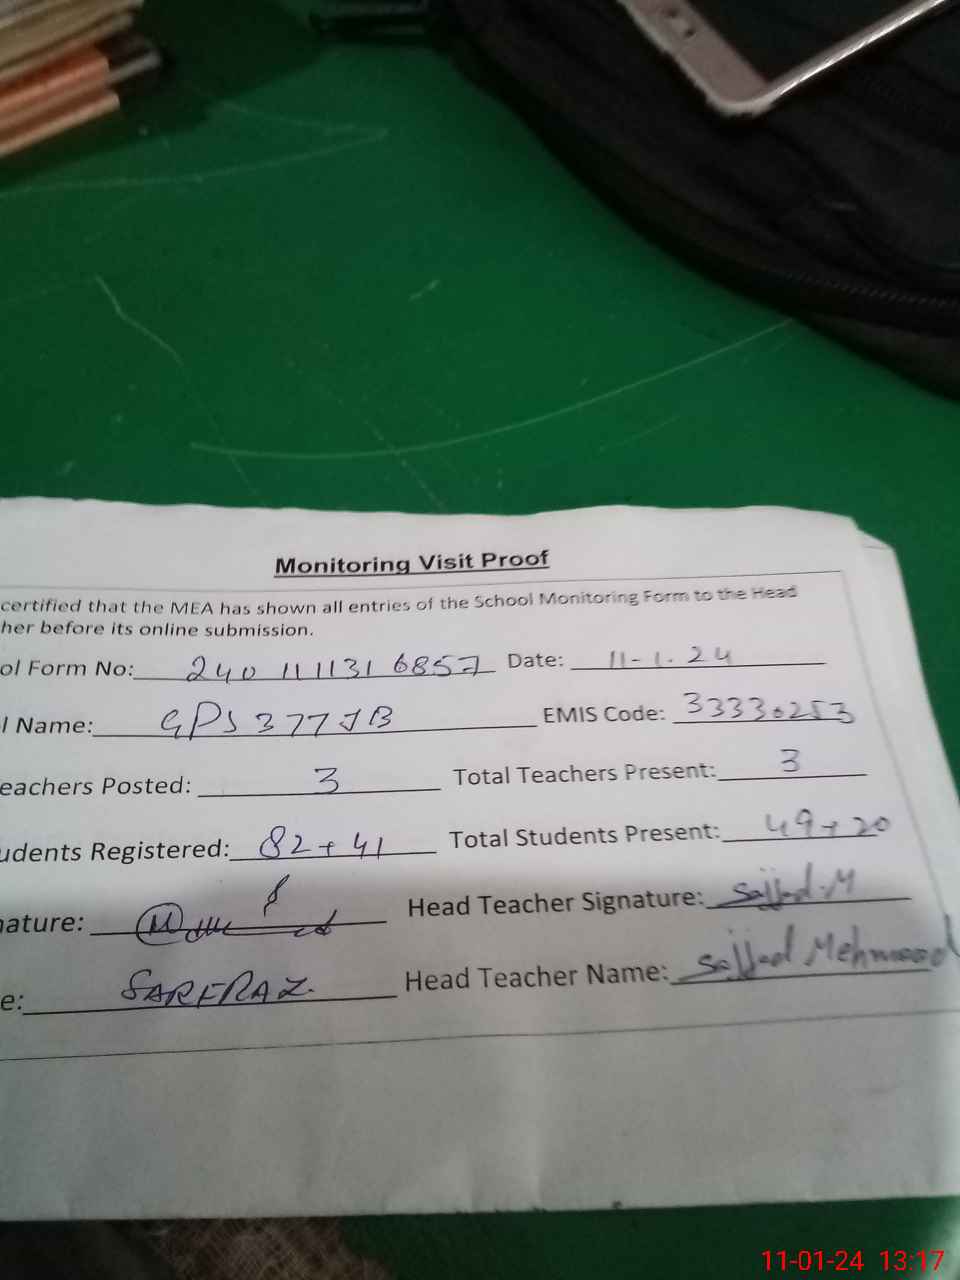 Monitoring Visit Proof
certified that the MEA has shown all entries of the School Monitoring Form to the Head
her before its online submission.
ol Form No: 240 111131 6857 Date: 11-1.24
l Name: GPS 377 JB EMIS Code: 33330253
eachers Posted: 3 Total Teachers Present: 3
udents Registered: 82+41 Total Students Present: 49+20
nature: Head Teacher Signature: Sajjad.M
e: SARFRAZ. Head Teacher Name: Sajjad Mehmood
11-01-24 13:17